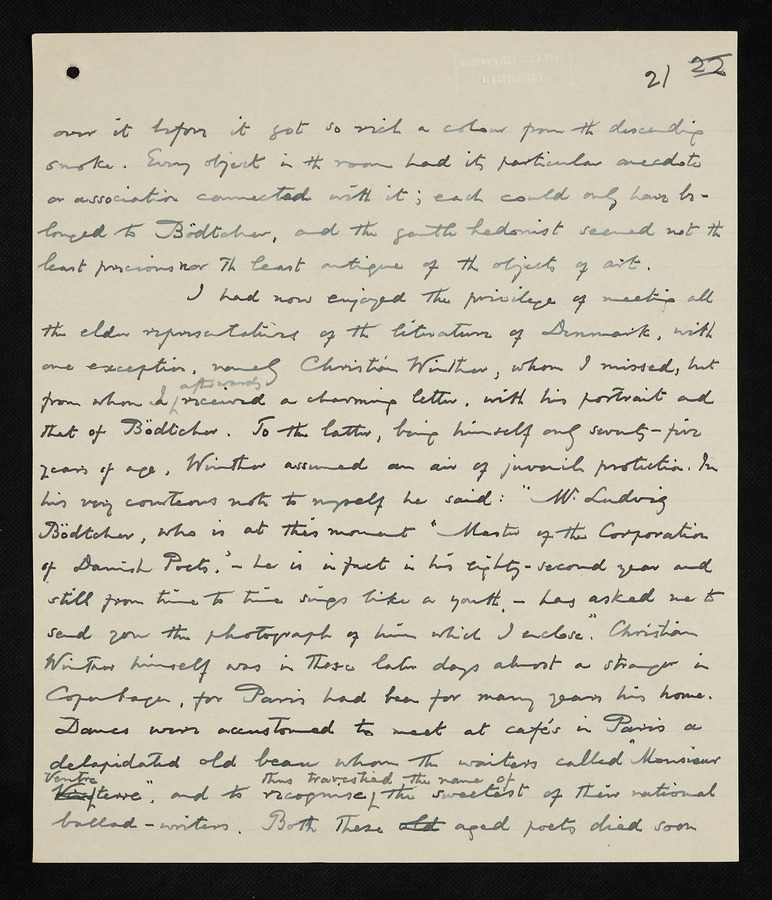 21 22
over it before it got so rich a colour from th descending
smoke. Every object in th room had its particular anecdote
or association connected with it; each could only have be-
longed to Bödtcher, and the gentle hedonist seemed not th
least precious nor th least antique of th objects of art.
I had now enjoyed the privilege of meeting all
the elder representatives of th literature of Denmark, with
one exception, namely Christian Winther, whom I missed, but
afterwards
from whom I received a charming letter, with his portrait and
that of Bödtcher. To the latter, being himself only seventy-five
years of age, Winther assumed an air of juvenile protection. In
his very courteous note to myself he said: "Mr. Ludvig
Bödtcher, who is at this moment "Master of the Corporation
of Danish Poets," – he is in fact in his eighty-second year and
still from time to time sings like a youth, – has asked me to
send you the photograph of him which I enclose". Christian
Winther himself was in these later days almost a stranger in
Copenhagen, for Paris had been for many years his home.
Danes were accustomed to meet at cafés in Paris a
delapidated old beau whom the waiters called "Monsieur
Ventre thus travestied the name of
terre", and to recognise, the sweetest of their national
ballad-writers. Both these old aged poets died soon